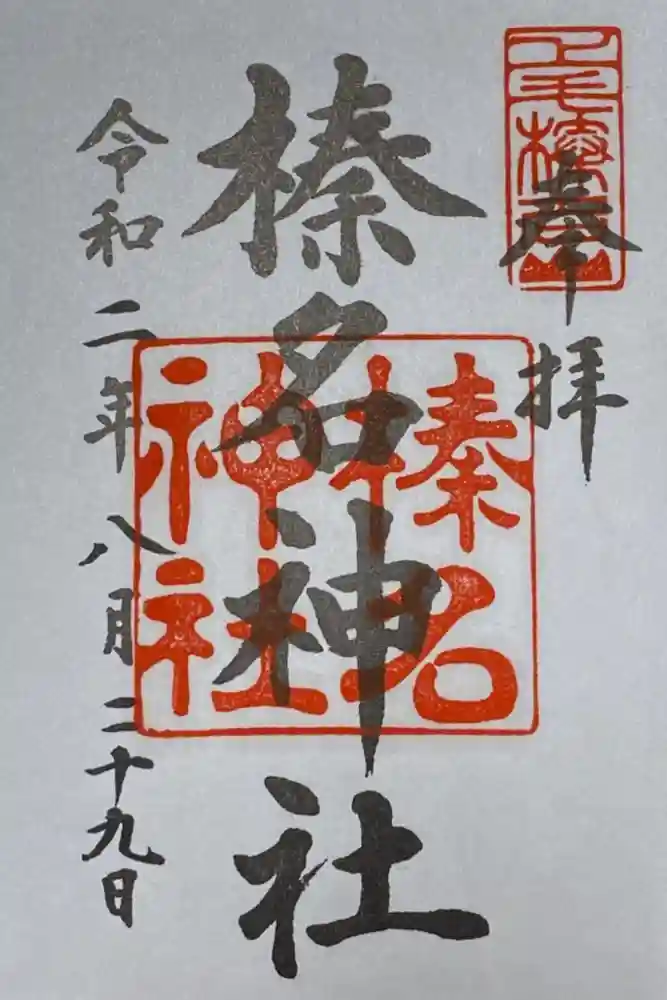 奉拝
上毛榛名山
榛名神社
榛名
神社
令和二年八月二十九日